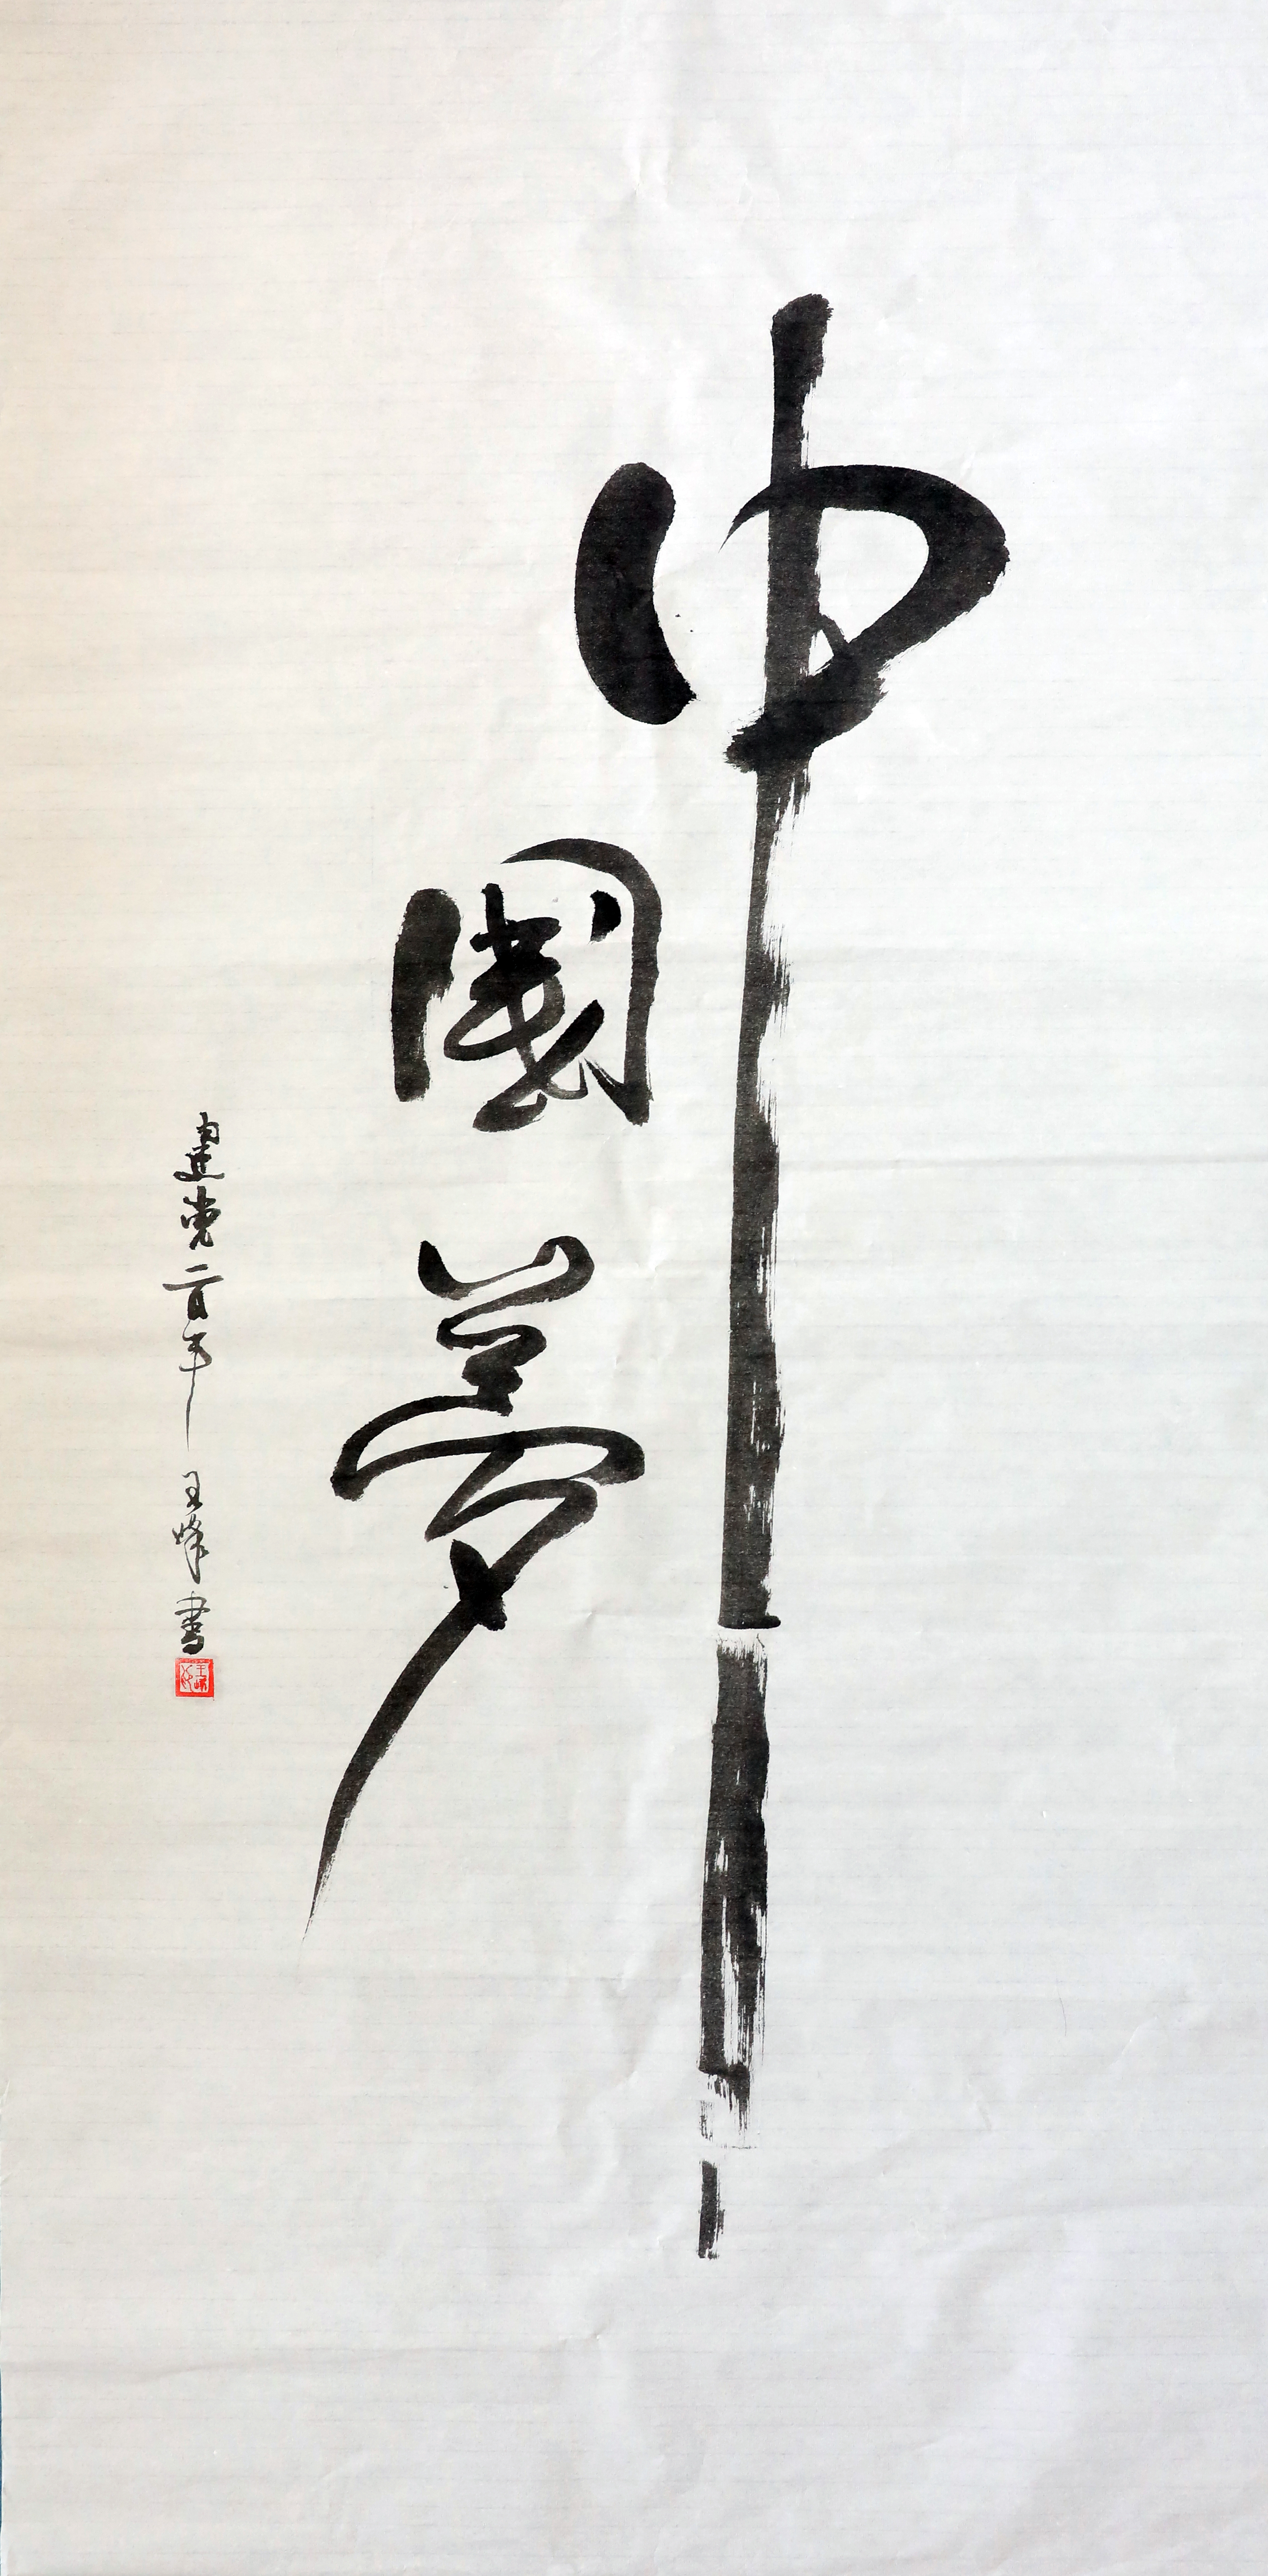 中
國夢
建党一百年 王峰書